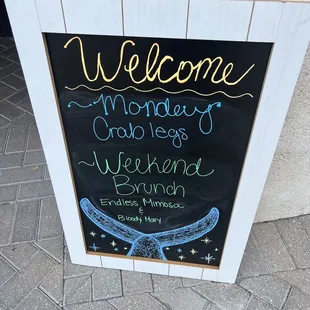 Welcome
~Monday
Crab legs
~Weekend
Brunch
Endless Mimosa
&
Bloody Mary